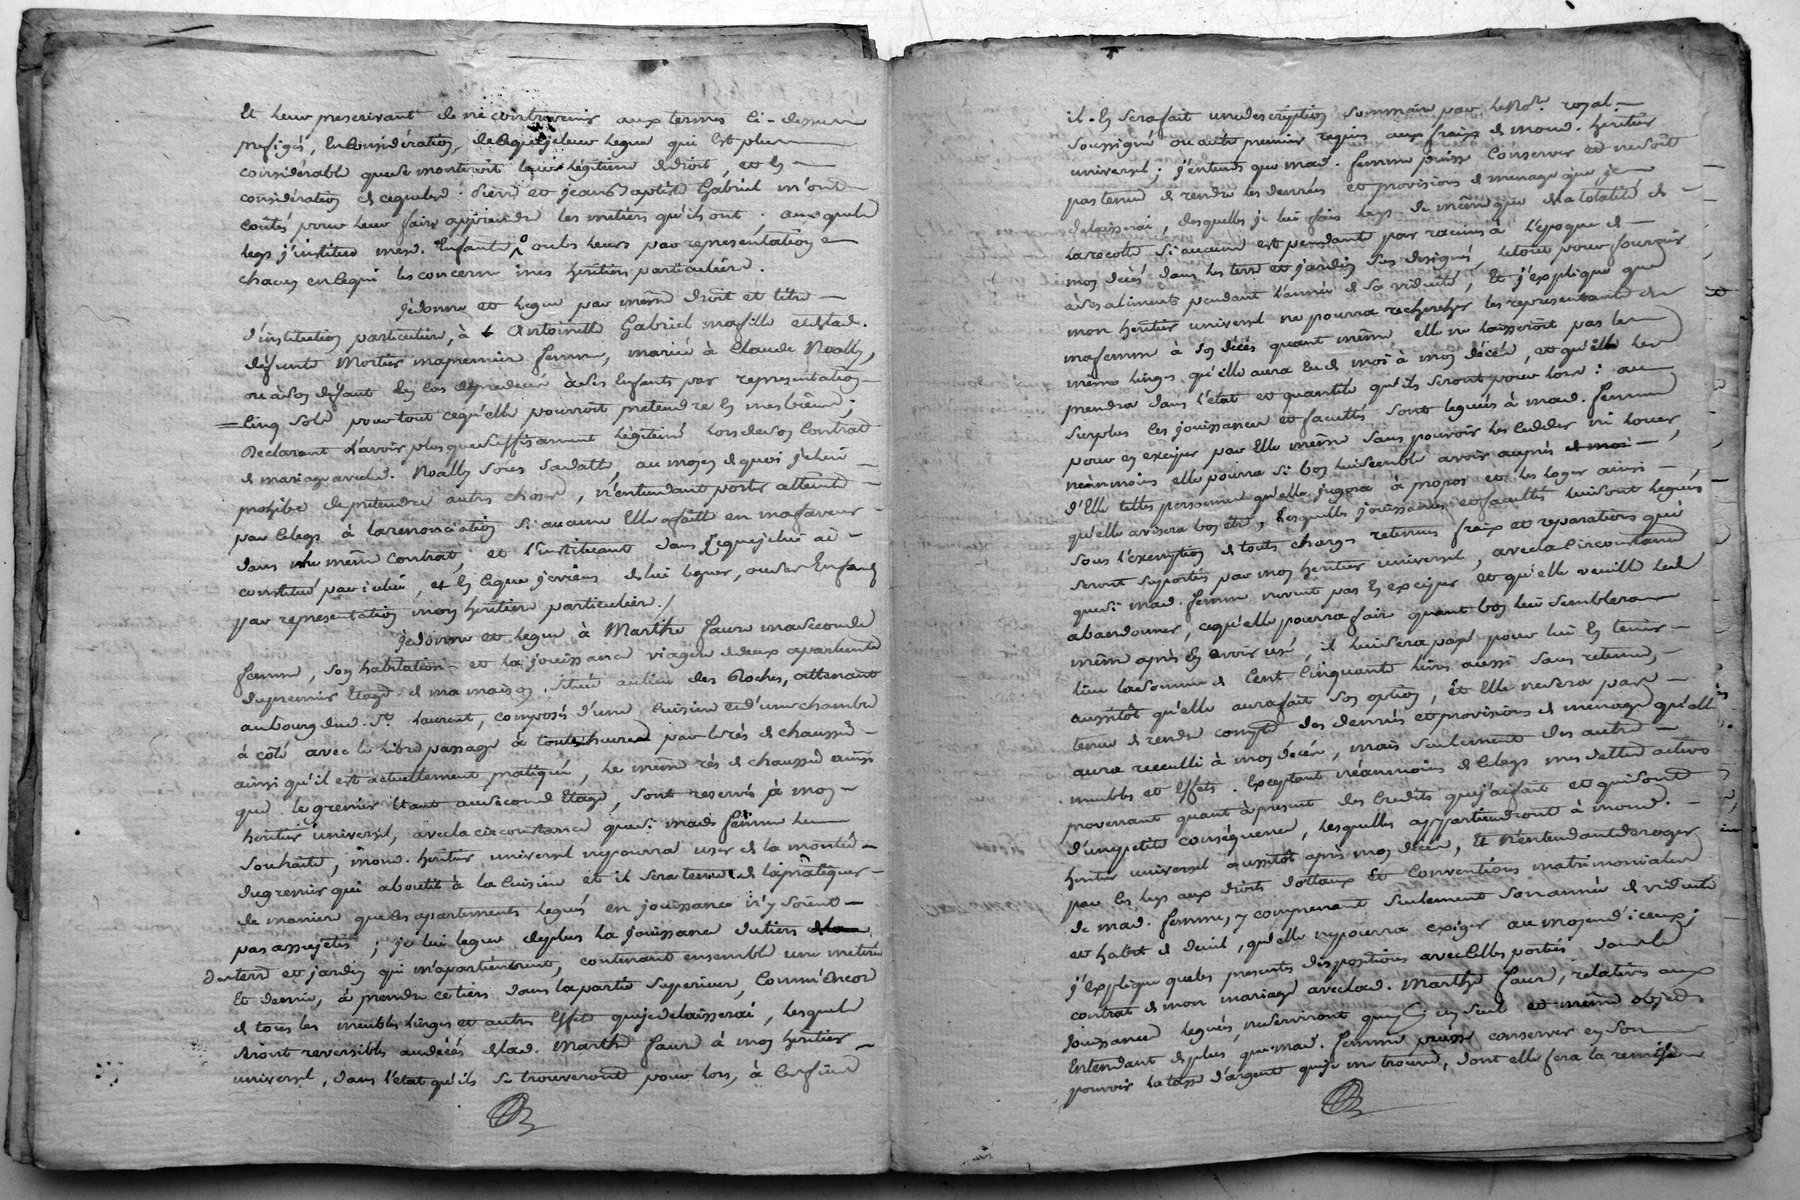 Et leur prescrivant de ne contrevenir aux termes ci-dessus
prefigés, En Considération, de cequejeleur legue qui est plus
considérable quenese monteroit leur légitime dedroit, et En
considération de cequelesd. Pierre et jean Baptiste Gabriel m'ont
coutés pour leur faire apprendre les metiers qu'ils ont. auxquels
legs j'institue mesd. Enfants ou les leurs par représentation
chacun encequi les concerne mes héritiers particuliers.
Jedonne et legue par même droit et titre
d'institution particuliere, à Antoinette Gabriel mafille et delad.
defunte Mortier mapremiere femme, mariée à Claude Noally,
ou àson defaut En cas depredeces àses Enfants par representation
Cinq sols pour tout cequ'elle pourroit pretendre En mes biens;
Declarant L'avoir plus quesuffisamment légitimé lors deson Contrat
de mariage avecled. Noally sous sadatte, au moyen de quoi je lui
prohibe de pretendre autre chose, n'entendant porter atteinte
par celegs à larenonciation si aucune Elle afaitte en mafaveur
dans même Contrat, et l'instituant dans cequejelui ai
constitué par icelui, et En ceque jeviens delui leguer, ouses Enfants
par representation mon héritiere particuliere./
Jedonne et legue à Marthe faure maseconde
femme, son habitation et la jouissance viagere dedeux apartements
dupremier Etage de ma maison, située aulieu des Roches, attenant
aubourg dud. St. Laurent, composés d'une Cuisine et d'une chambre
à côté avec le libre passage à toutes heures par le rés de chaussée
ainsi qu'il est actuellement pratiqué, le même rés de chaussée ainsi
que le grenier Etant ausecond Etage, sont reservés à mon
heritier universel, avec la circonstance quesi mad. femme le
souhaite, mond. heritier universel nepourra user de la montée
dugrenier qui aboutit à la Cuisine et il sera tenu de lapratiquer
de maniere queles apartements legués en jouissance n'y soient
pas assujetis; je lui legue deplus la jouissance dutiers
de terre et jardin qui m'apartiennent, contenant ensemble une metérée
Et demie, à prendre cetiers dans lapartie superieure, Comm'Encore
de tous les meubles linges et autres Effets quejedelaisserai, lesquels
seront reversibles audécés delad. Marthe faure à mon heritier
universel, dans l'état qu'ils se trouveront pour lors, à cesfins
il En serafait unedescription sommaire par leNore. royal
soussigné ou autre premier requis aux fraix de mond. heritier
universel; j'entends que mad. femme puisse Conserver et nesoit
pas tenue de rendre les denrées et provisions de menage que je
delaisserai, desquelles je lui fais legs de même que dela totalité de
la récolte si aucune est pendante par racines à l'époque de
mon décés dans les terre et jardin sus designés, letout pour fournir
àsesaliments pendant l'année de sa viduité, Et j'explique que
mon heritier universel ne pourra rechercher les représentants de
mafemme à son décés quant même elle ne laisseroit pas les
mêmes linges qu'elle aura eu de moi à mon décés, et qu'elle les
prendra dans l'etat et quantité qu'ils seront pour lors: au
surplus les jouissances et facultés sont leguées à mad. femme
pour en exciper par Elle même sans pouvoir les ceder ni louer
néanmoins elle pourra si bon luisemble avoir auprès
d'Elle telles personnes qu'elle jugera à propos et les loger ainsi
qu'elle avisera bon etre, lesquelles jouissances et facultés luisont leguées
sous l'exemption de toutes charges retenues fraix et reparations que
seront suportés par mon heritier universel, avec la circonstance
quesi mad. femme neveut pas En exciper Et qu'elle veuille les
abandonner, cequ'elle pourra faire quant bon lui semblera
même après En avoir usé, il luisera payé pour lui En tenir
lieu lasomme de Cent Cinquante livres aussi sans retenue,
aussitôt qu'elle aurafait son option, et Elle nesera pas
tenue de rendre compte des denrées et provisions de menage qu'elle
aura recueilli à mon décés, mais seulement des autres
meubles et Effets. Exceptant néanmoins de celegs mes dettes actives
provenant quant àpresent des credits quej'aifait et quisont
d'unepetite conséquence, lesquelles appartiendront à mond.
heritier universel aussitôt après mon décés, Et n'entendant deroger
par ces legs aux droits dottaux Et conventions matrimoniales
de mad. femme, y comprenant seulement son année de viduité
et habit de deuil, qu'elle nepourra exiger au moyen d'iceux;
j'explique queles presentes dispositions avec Celles portées dans le
contrat de mon mariage avec lad. Marthe faure, relatives aux
jouissances leguées, neserviront que d'un seul et même objet
Entendant deplus que mad. femme puisse conserver en son
pouvoir la tasse d'argent quise me trouve, dont elle fera la remise